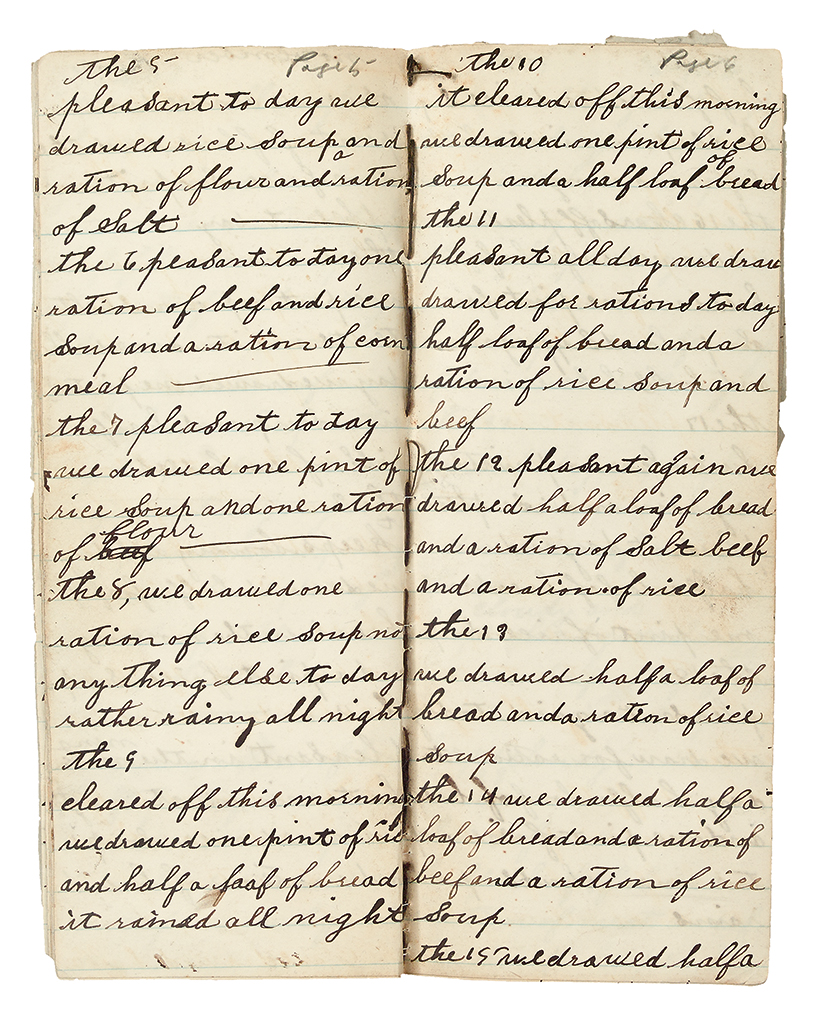 the 5 Page 5
pleasant to day we
drawed rice Soup and
a
ration of flour and ration
of Salt
the 6 peasant to day one
ration of beef and rice
Soup and a ration of corn
meal
the 7 pleasant to day
we drawed one pint of
rice Soup and one ration
flour
of beef
the 8, we drawed one
ration of rice Soup no
any thing else to day
rather rainy all night
the 9
cleared off this morning
we drawed one pint of ric
and half a faaf of bread
it rained all night
the 10 Page 6
it cleared off this morning
we drawed one pint of rice
of
Soup and a half loaf bread
the 11
pleasant all day we draw
drawed for rations to day
half loaf of bread and a
ration of rice Soup and
beef
the 12 pleasant again we
drawed half a loaf of bread
and a ration of Salt beef
and a ration of rice
the 13
we drawed half a loaf of
bread and a ration of rice
Soup
the 14 we drawed half a
loaf of bread and a ration of
beef and a ration of rice
Soup
the 15 we drawed half a